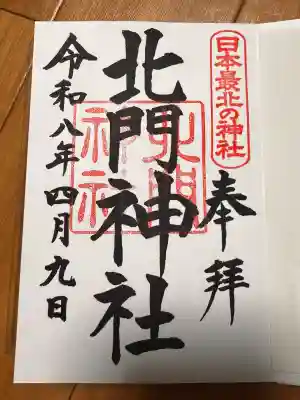 日本最北の神社
奉拝
北門神社
北門神社
令和八年四月九日